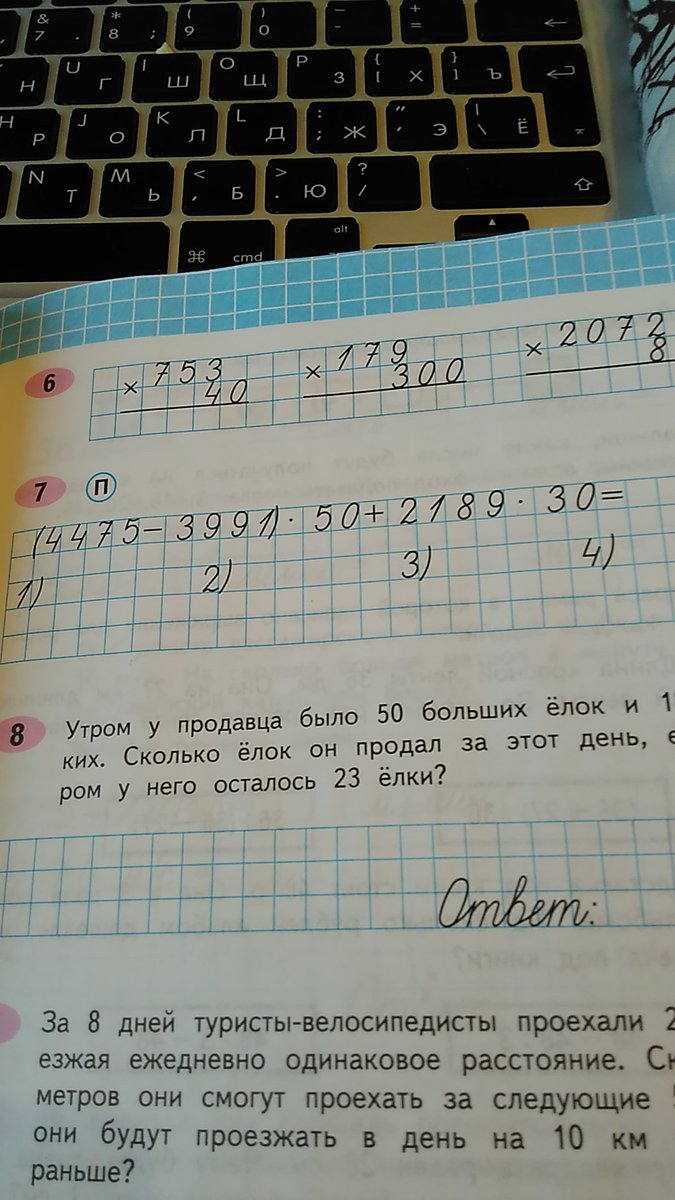 & 7 * 8 ; ( 9 ) 0 - - + =
Н U Г I Ш O Щ P З { [ Х } ] Ъ
H Р J О K Л L Д : ; Ж " ' Э | \ Ё
N Т M Ь < , Б > . Ю ? /
⌘ cmd alt
6
× 753 × 179 × 2072
40 300 8
7 П
(4475-3991)·50+2189·30=
1) 2) 3) 4)
8 Утром у продавца было 50 больших ёлок и 1
ких. Сколько ёлок он продал за этот день, е
ром у него осталось 23 ёлки?
Ответ:
За 8 дней туристы-велосипедисты проехали 2
езжая ежедневно одинаковое расстояние. Ск
метров они смогут проехать за следующие
они будут проезжать в день на 10 км
раньше?